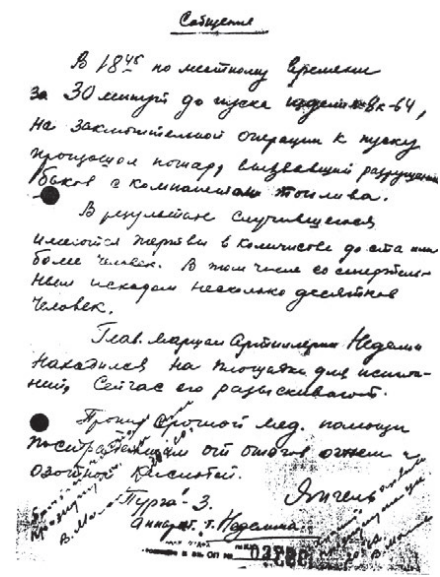 Сообщение
В 18 45 по местному времени
за 30 минут до пуска изделия 8к-64,
на заключительной операции к пуску
произошол пожар, вызвавший разрушение
баков с компонентами топлива.
В результате случившегося
имеются жертвы в количестве до ста или
более человек. В том числе со смертель-
ным исходом несколько десятков
человек.
Глав. маршал Артиллерии Неделин
находился на площадке для испыта-
ний, Сейчас его разыскивают.
Прошу срочной мед. помощи
пострадавшим от ожогов огнем и
азотной кислотой.
Янгель
"Пурга"-3.
Аппарат. т. Неделина